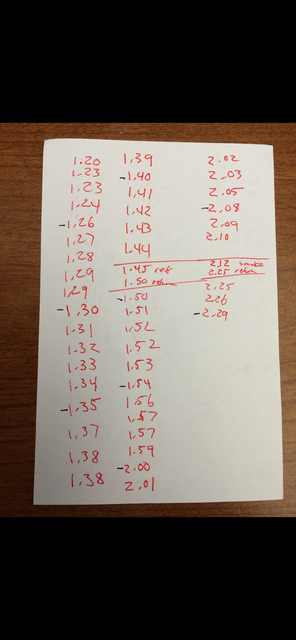 1.20
1.23
1.23
1.24
-1.26
1.27
1.28
1.29
1.29
-1.30
1.31
1.32
1.33
1.34
-1.35
1.37
1.38
1.38
1.39
-1.40
1.41
1.42
1.43
1.44
1.45 ref
1.50 return
-1.50
1.51
1.52
1.52
1.53
-1.54
1.56
1.57
1.57
1.59
-2.00
2.01
2.02
2.03
2.05
-2.08
2.09
2.10
2.12 smoke
2.25 return
2.25
2.26
-2.29